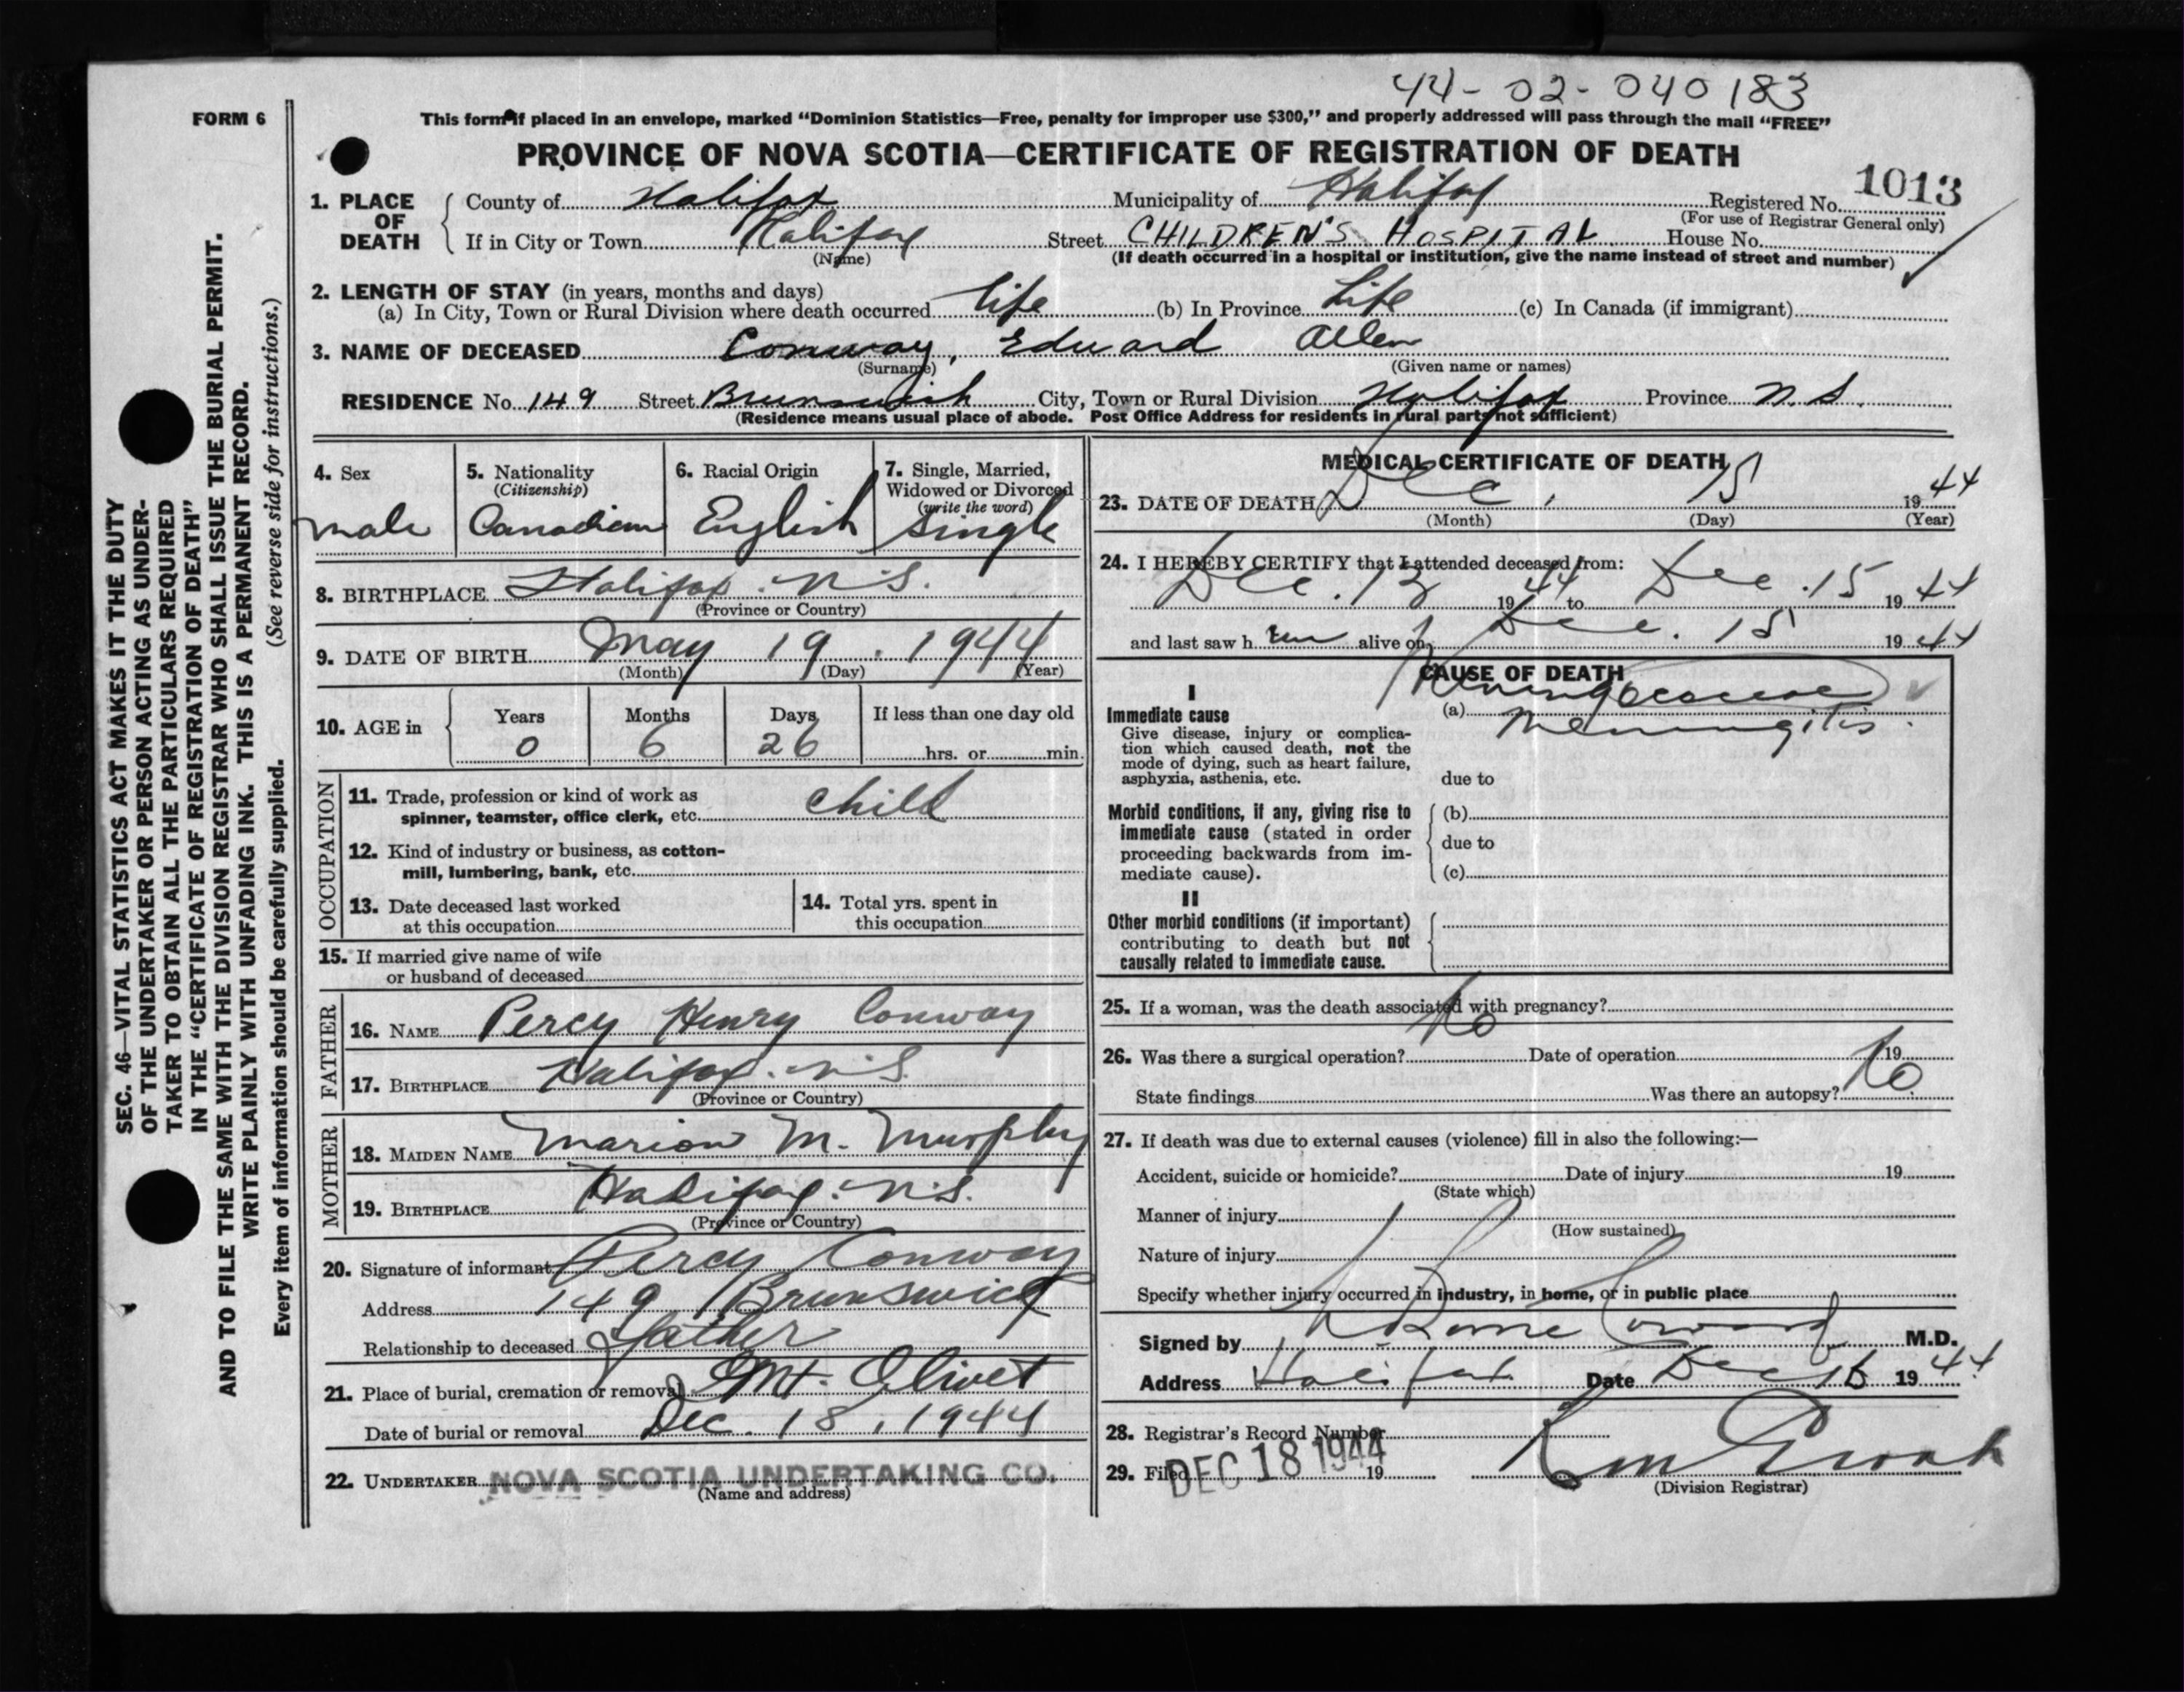 44-02-040183
FORM 6
This form if placed in an envelope, marked "Dominion Statistics—Free, penalty for improper use $300," and properly addressed will pass through the mail "FREE"
PROVINCE OF NOVA SCOTIA—CERTIFICATE OF REGISTRATION OF DEATH
1. PLACE OF DEATH
County of Halifax Municipality of Halifax Registered No. 1013
(For use of Registrar General only)
If in City or Town Halifax Street CHILDREN'S HOSPITAL House No.
(Name) (If death occurred in a hospital or institution, give the name instead of street and number)
2. LENGTH OF STAY (in years, months and days)
(a) In City, Town or Rural Division where death occurred life (b) In Province Life (c) In Canada (if immigrant)
3. NAME OF DECEASED Conway, Edward Allen
(Surname) (Given name or names)
RESIDENCE No. 149 Street Brunswick City, Town or Rural Division Halifax Province N.S.
(Residence means usual place of abode. Post Office Address for residents in rural parts not sufficient)
4. Sex
male
5. Nationality
(Citizenship)
Canadian
6. Racial Origin
English
7. Single, Married,
Widowed or Divorced
(write the word)
single
8. BIRTHPLACE Halifax. N.S.
(Province or Country)
9. DATE OF BIRTH May 19. 1944
(Month) (Day) (Year)
10. AGE in
Years Months Days If less than one day old
0 6 26 hrs. or min.
OCCUPATION
11. Trade, profession or kind of work as
spinner, teamster, office clerk, etc. child
12. Kind of industry or business, as cotton-
mill, lumbering, bank, etc.
13. Date deceased last worked
at this occupation
14. Total yrs. spent in
this occupation
15. If married give name of wife
or husband of deceased
FATHER
16. NAME Percy Henry Conway
17. BIRTHPLACE Halifax. N.S.
(Province or Country)
MOTHER
18. MAIDEN NAME Marion M. Murphy
19. BIRTHPLACE Halifax. N.S.
(Province or Country)
20. Signature of informant Percy Conway
Address 149 Brunswick
Relationship to deceased father
21. Place of burial, cremation or removal Mt. Olivet
Date of burial or removal Dec. 18, 1944
22. UNDERTAKER NOVA SCOTIA UNDERTAKING CO.
(Name and address)
MEDICAL CERTIFICATE OF DEATH
23. DATE OF DEATH Dec. 15 1944
(Month) (Day) (Year)
24. I HEREBY CERTIFY that I attended deceased from:
Dec. 13 1944 to Dec. 15 1944
and last saw h im alive on Dec. 15 1944
CAUSE OF DEATH
I
Immediate cause
Give disease, injury or complica-
tion which caused death, not the
mode of dying, such as heart failure,
asphyxia, asthenia, etc.
(a) Meningococcic
Meningitis.
due to
Morbid conditions, if any, giving rise to
immediate cause (stated in order
proceeding backwards from im-
mediate cause).
(b)
due to
(c)
II
Other morbid conditions (if important)
contributing to death but not
causally related to immediate cause.
25. If a woman, was the death associated with pregnancy?
26. Was there a surgical operation? No Date of operation 19
State findings Was there an autopsy? No.
27. If death was due to external causes (violence) fill in also the following:—
Accident, suicide or homicide? Date of injury 19
(State which)
Manner of injury
(How sustained)
Nature of injury
Specify whether injury occurred in industry, in home, or in public place
Signed by Coward M.D.
Address Halifax Date Dec 16 1944
28. Registrar's Record Number
29. Filed DEC 18 1944 19
(Division Registrar)
SEC. 46—VITAL STATISTICS ACT MAKES IT THE DUTY
OF THE UNDERTAKER OR PERSON ACTING AS UNDER-
TAKER TO OBTAIN ALL THE PARTICULARS REQUIRED
IN THE "CERTIFICATE OF REGISTRATION OF DEATH"
AND TO FILE THE SAME WITH THE DIVISION REGISTRAR WHO SHALL ISSUE THE BURIAL PERMIT.
WRITE PLAINLY WITH UNFADING INK. THIS IS A PERMANENT RECORD.
Every item of information should be carefully supplied. (See reverse side for instructions.)